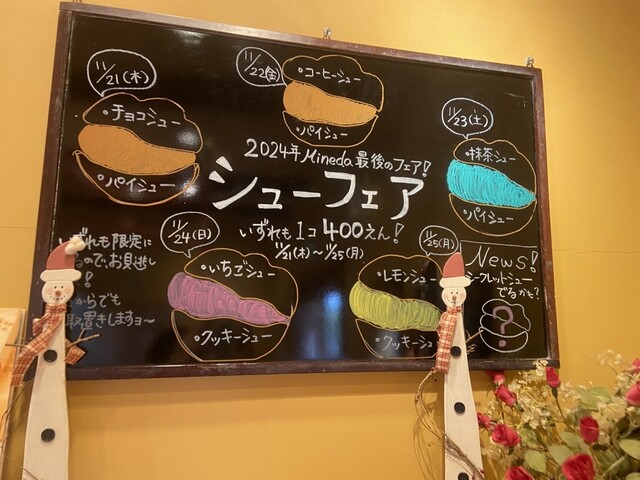 11/21(木)
・チョコシュー
・パイシュー
11/22(金)
・コーヒーシュー
・パイシュー
11/23(土)
・抹茶シュー
・パイシュー
2024年 Mineda 最後のフェア!
シューフェア
いずれも1コ400えん!
11/21(木)~11/25(月)
11/24(日)
・いちごシュー
・クッキーシュー
11/25(月)
・レモンシュー
・クッキーシュー
ずれも限定に
ので、お見逃し
!
からでも
取置きしますョ~
News!
シークレットシュー
でるかも?
?